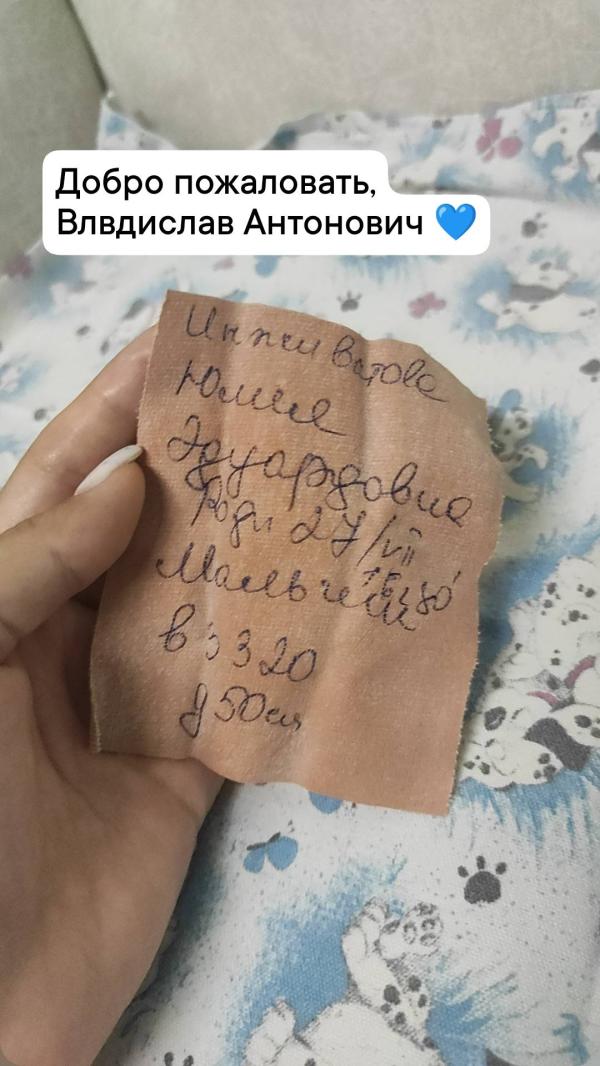 Добро пожаловать,
Влвдислав Антонович 💙
Юлия
Эдуардовна
Роди 27/VII
Мальчик
в 3320
д 50см